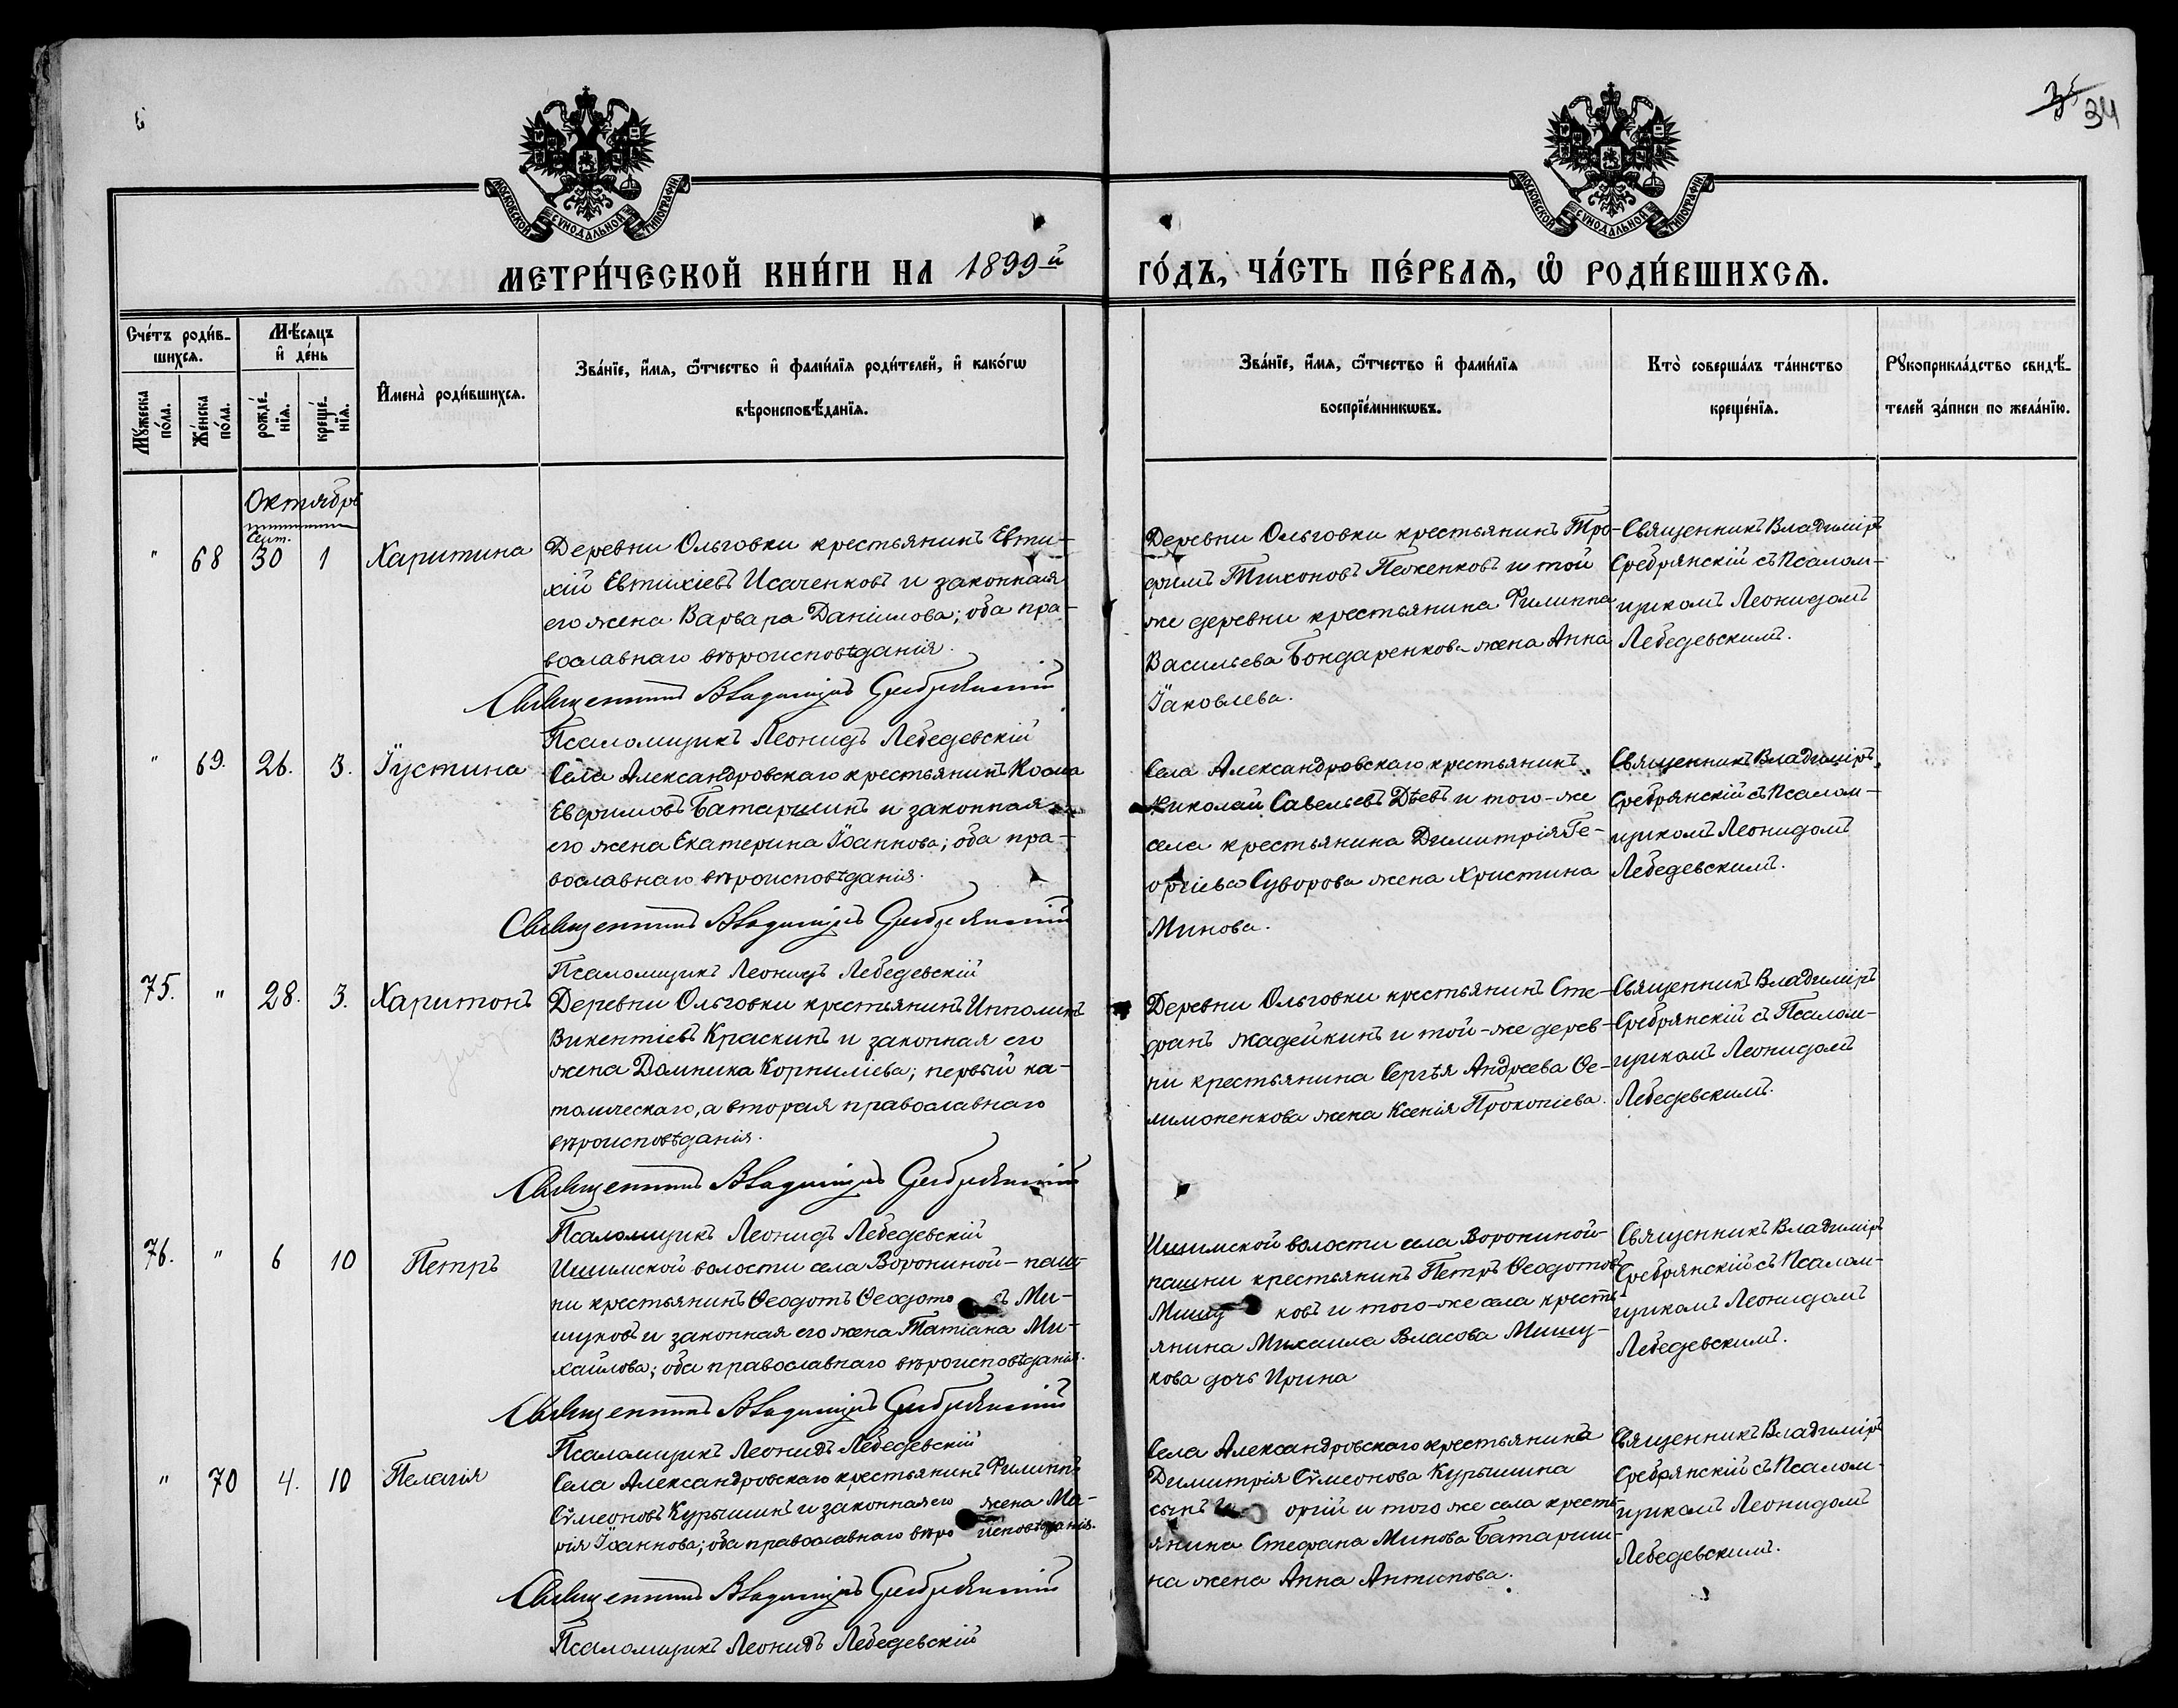 35 34
МОСКОВСКОЙ СѴНОДАЛЬНОЙ ТИПОГРАФІИ
МОСКОВСКОЙ СѴНОДАЛЬНОЙ ТИПОГРАФІИ
МЕТРИ́ЧЕСКОЙ КНИ́ГИ НА 1899-й ГО́ДЪ, ЧА́СТЬ ПЕ́РВАѦ, Ѡ҆ РОДИ́ВШИХСѦ.
Сче́тъ роди́в-
шихсѧ.
Мꙋ́жеска по́ла.
Же́нска по́ла.
Мѣ́сѧцъ
и҆ де́нь
рожде́-
нїѧ.
креще́-
нїѧ.
И҆мена̀ роди́вшихсѧ.
Зва́нїе, и҆́мѧ, ѻ҆́тчество и҆ фами́лїѧ роди́телей, и҆ како́гѡ
вѣроисповѣ́данїѧ.
Зва́нїе, и҆́мѧ, ѻ҆́тчество и҆ фами́лїѧ
воспрїе́мникѡвъ.
Кто̀ соверша́лъ та́инство
креще́нїѧ.
Рꙋкоприкла́дство свидѣ́-
телей за́писи по жела́нїю.
Октябрь
Сент.
" 68 30 1 Харитина
Деревни Ольговки крестьянинъ Евти-
хій Евтихіевъ Исаченковъ и законная
его жена Варвара Даніилова; оба пра-
вославнаго вѣроисповѣданія.
Священникъ Владиміръ Сребрянскій
Псаломщикъ Леонидъ Лебедевскій
Деревни Ольговки крестьянинъ Тро-
фимъ Тихоновъ Пеженковъ и той
же деревни крестьянина Филиппа
Васильева Бондаренкова жена Анна
Іаковлева.
Священникъ Владиміръ
Сребрянскій съ Псалом-
щикомъ Леонидомъ
Лебедевскимъ.
" 69. 26. 3. Іустина
Села Александровскаго крестьянинъ Косма
Евфимовъ Батаршинъ и законная
его жена Екатерина Іоаннова; оба пра-
вославнаго вѣроисповѣданія.
Священникъ Владиміръ Сребрянскій
Псаломщикъ Леонидъ Лебедевскій
Села Александровскаго крестьянинъ
Николай Савельевъ Дѣевъ и того-же
села крестьянина Димитрія Ге-
оргіева Суворова жена Христина
Минова.
Священникъ Владиміръ
Сребрянскій съ Псалом-
щикомъ Леонидомъ
Лебедевскимъ.
75. " 28. 3. Харитонъ
Деревни Ольговки крестьянинъ Ипполитъ
Викентіевъ Краскинъ и законная его
жена Домника Корниліева; первый ка-
толическаго, а вторая православнаго
вѣроисповѣданія.
Священникъ Владиміръ Сребрянскій
Псаломщикъ Леонидъ Лебедевскій
Деревни Ольговки крестьянинъ Сте-
фанъ Жадейкинъ и той-же дерев-
ни крестьянина Сергѣя Андреева Фе-
лимоненкова жена Ксенія Прокопіева.
Священникъ Владиміръ
Сребрянскій съ Псалом-
щикомъ Леонидомъ
Лебедевскимъ.
76. " 6 10 Петръ
Ишимской волости села Ворониной-паш-
ни крестьянинъ Ѳеодотъ Ѳеодото въ Ми-
шуковъ и законная его жена Татіана Ми-
хаилова; оба православнаго вѣроисповѣданія.
Священникъ Владиміръ Сребрянскій
Псаломщикъ Леонидъ Лебедевскій
Ишимской волости села Ворониной-
пашни крестьянинъ Петръ Ѳеодотовъ
Мишу ковъ и того-же села кресть-
янина Михаила Власова Мишу-
кова дочь Ирина
Священникъ Владиміръ
Сребрянскій съ Псалом-
щикомъ Леонидомъ
Лебедевскимъ.
" 70 4. 10 Пелагія
Села Александровскаго крестьянинъ Филиппъ
Сѵмеоновъ Курышинъ и законная его жена Ма-
рія Іоаннова; оба православнаго вѣро исповѣданія.
Священникъ Владиміръ Сребрянскій
Псаломщикъ Леонидъ Лебедевскій
Села Александровскаго крестьянина
Димитрія Сѵмеонова Курышина
сынъ Ге оргій и того же села кресть-
янина Стефана Минова Батарши-
на жена Анна Антипова.
Священникъ Владиміръ
Сребрянскій съ Псалом-
щикомъ Леонидомъ
Лебедевскимъ.